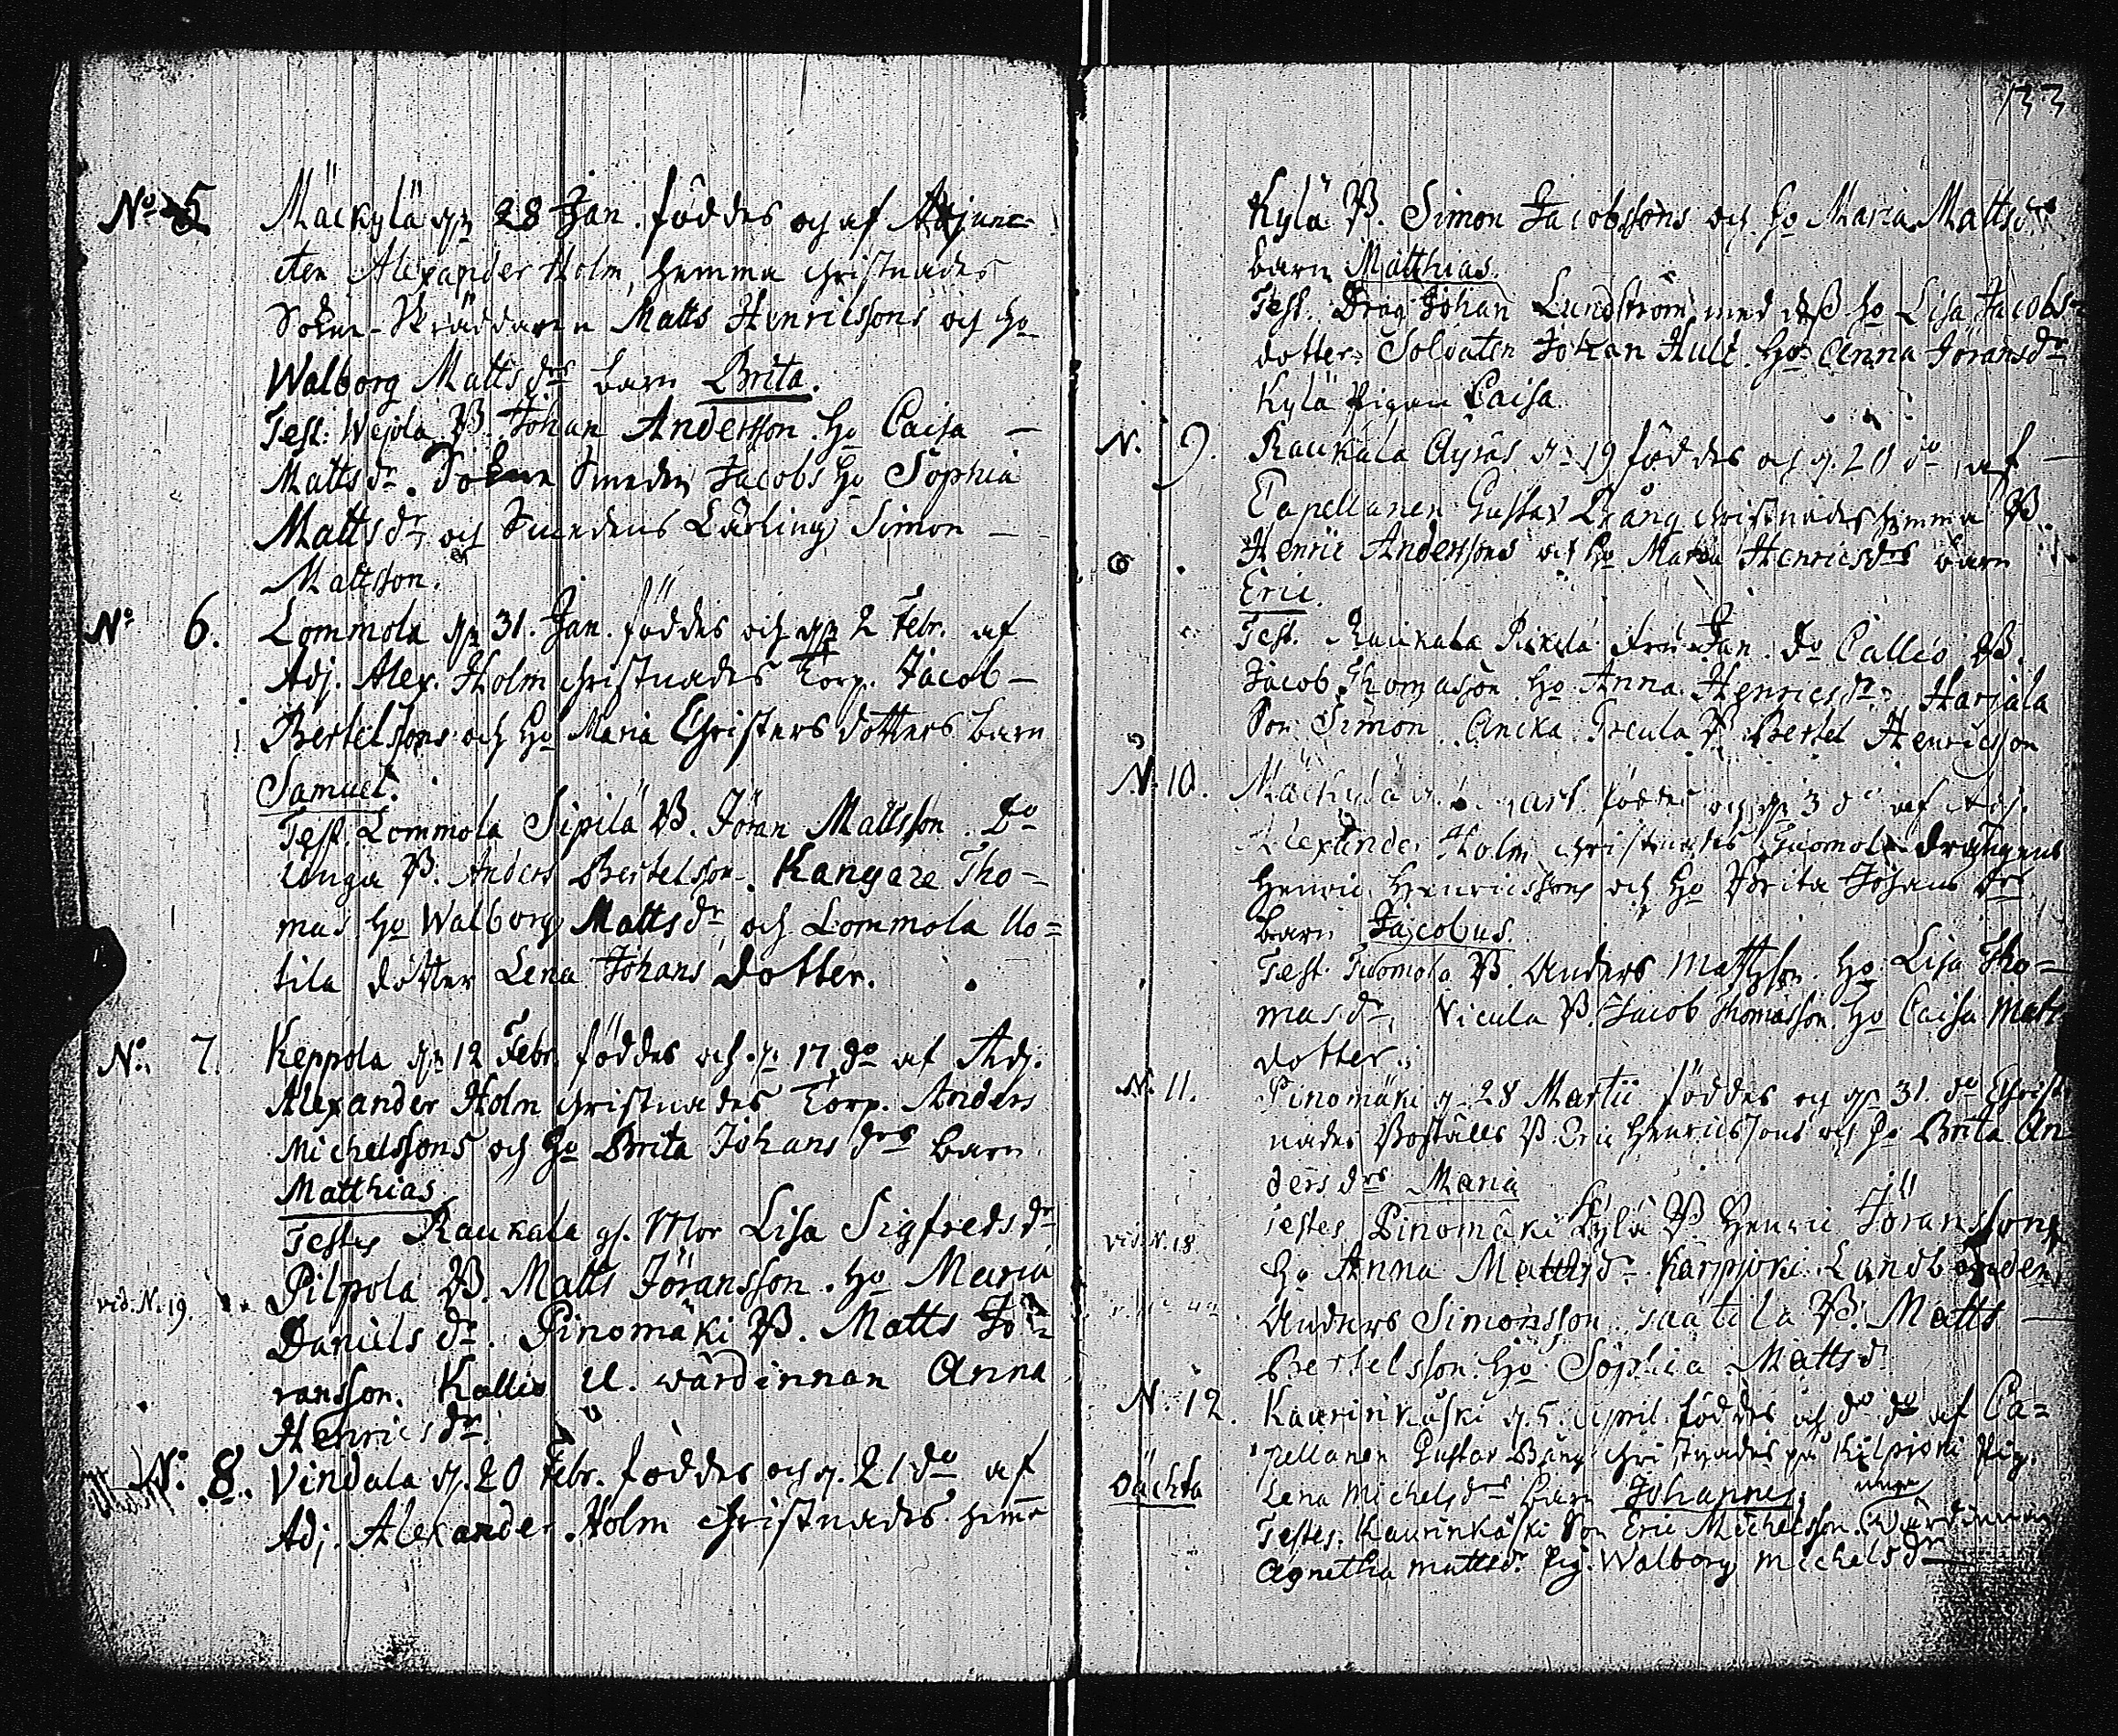 No 5 Mäckylä dn 28 Jan. föddes och af Adjunc-
cten Alexander Holm, hemma christnades
Sokne-Skräddaren Matts Henricssons och ho
Walborg Mattsdrs barn Brita.
Test: Wejola B. Johan Andersson. ho Caisa —
Mattsdr. Sokne Smeden Jacobs ho Sophia
Mattsdr, och Smedens Lärling Simon —
Mattsson.
No 6. Lommola dn 31. Jan. föddes och dn 2 Febr. af
Adj. Alex. Holm christnades Torp. Jacob —
Bertelssons och ho Maria Christers dotters barn
Samuel.
Test. Lommola Sipilä B. Jöran Mattsson. Do
Unga B. Anders Bertelsson. Kangare Tho-
mas ho Walborg Mattsdr, och Lommola Uo=
tila dotter Lena Johans dotter.
No. 7. Keppola dn 12 Febr. föddes och d. 17 do af Adj.
Alexander Holm christnades Torp. Anders
Michelssons och ho Brita Johans drs barn
Matthias
Testes Raukala gl. Mor Lisa Sigfredsdr
vid. N. 19. Pilpola B. Matts Jöransson. ho Maria
Daniels dr. Pinomäki B. Matts Jö=
ransson. Kallio U. wärdinnan Anna
Henricsdr.
N: 8. Vindala d. 20 Febr. föddes och d. 21 do af
Adj. Alexander Holm christnades hemma
133
Kylä B. Simon Jacobssons och ho Maria Mattsdrs
barn Matthias.
Test. Drag Johan Lundström med dess ho Lisa Jacobs-
dotter. Soldaten Johan Hult. ho Anna Jöransdr
Kylä Pigan Caisa
N. 9. Raukala Äyräs d. 19 föddes och d. 20 do af —
Capellanen Gustav Bång christnades hemma B.
Henric Anderssons och ho Maria Henricsdrs barn
Eric.
Test. Raukala Do Callio B.
Jacob Thomasson ho Anna Henricsdr. Harjala
Son Simon. B. Bertel Henricsson
N. 10. Mäckylä föddes och dn 3 do af Adj.
Alexander Holm christnades Tuomola drängens
Henric Henricssons och ho Brita Johans drs
barn Jacobus.
Test. Tuomola B. Anders Mattsson. ho Lisa Tho=
masdr, Nicula B. Jacob Thomasson. ho Caisa Matts
dotter.
N. 11. Pinomäki d. 28 Martii föddes och dn 31. do Christ
nades Boställs B. Eric Henricssons och ho Brita An
ders drs Maria
vid. N. 18 Testes Pinomäki Kylä B Henric Jöranssons
ho Anna Mattsdr. Karpioki Landbonden
Anders Simonsson. B. Matts —
Bertelsson. ho Sophia Mattsd.
N. 12. Kaurinkoski d. 5. April. föddes och do do af Ca=
pellanen Gustav Bång christnades på Kilpioki Pig.
oächta Lena Michelsdrs barn Johannes. unga
Testes: Kaurinkoski Son Eric Michelsson. Wärdinnan
Agnetha Mattsdr. Pig. Walborg Michelsdr —